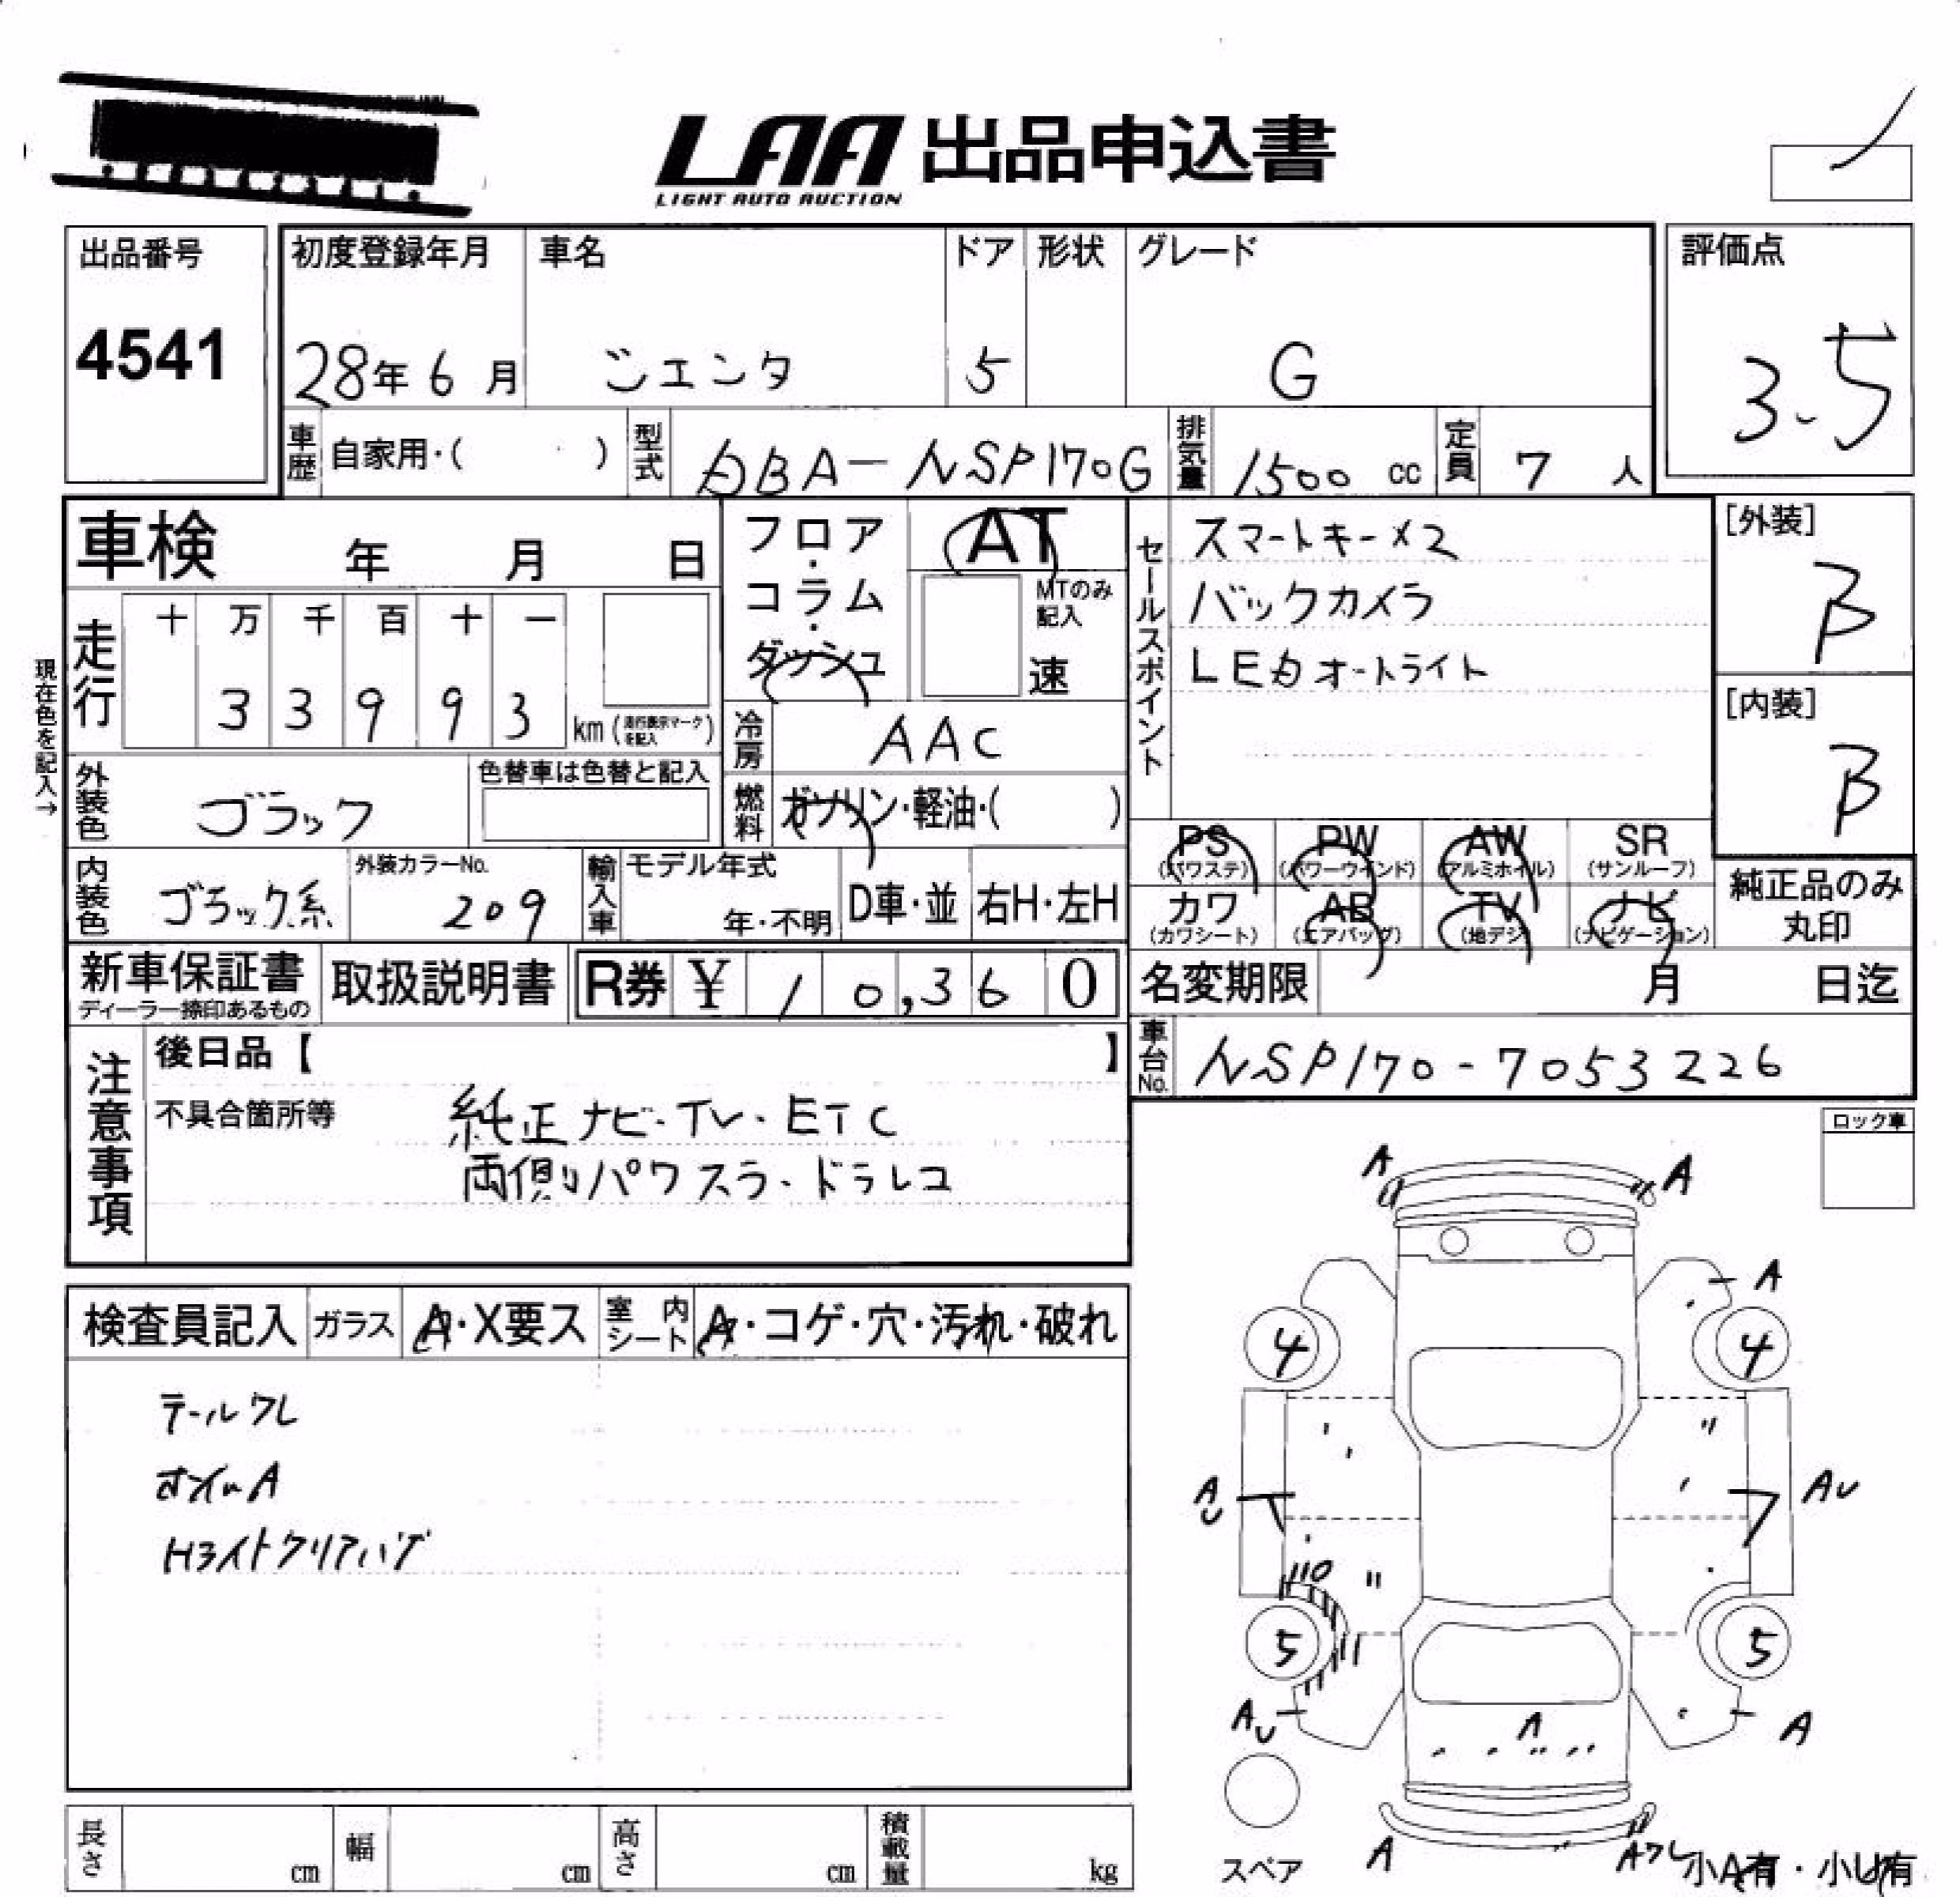 LAA 出品申込書
LIGHT AUTO AUCTION
出品番号 初度登録年月 車名 ドア 形状 グレード 評価点
4541 28年 6月 シエンタ 5 G 3.5
車歴 自家用・( ) 型式 DBA-NSP170G 排気量 1500 cc 定員 7 人
車検 年 月 日
フロア・コラム・ダッシュ
AT
MTのみ記入
速
セールスポイント
スマートキー×2
バックカメラ
LEDオートライト
[外装]
B
[内装]
B
現在色を記入→
走行 十 万 千 百 十 一
3 3 9 9 3 km (走行表示マークを記入)
冷房 AAC
外装色 ブラック 色替車は色替と記入
燃料 ガソリン・軽油・( )
PS (パワステ) PW (パワーウインド) AW (アルミホイル) SR (サンルーフ)
カワ (カワシート) AB (エアバッグ) TV (地デジ) ナビ (ナビゲーション)
純正品のみ丸印
内装色 ブラック系 外装カラーNo. 209 輸入車 モデル年式 年・不明 D車・並 右H・左H
新車保証書 ディーラー捺印あるもの 取扱説明書 R券 ¥ 10,360
名変期限 月 日迄
車台No. NSP170-7053226
注意事項
後日品【 】
不具合箇所等 純正ナビ・TV・ETC
両側パワスラ・ドラレコ
ロック車
検査員記入 ガラス A・X要ス 室内シート A・コゲ・穴・汚れ・破れ
テールワレ
ホイルA
Hライトクリアハゲ
A A
A
4 4
AU AU
10
5 5
AU A A
スペア
A Aワレ 小A有・小U有
長さ cm 幅 cm 高さ cm 積載量 kg